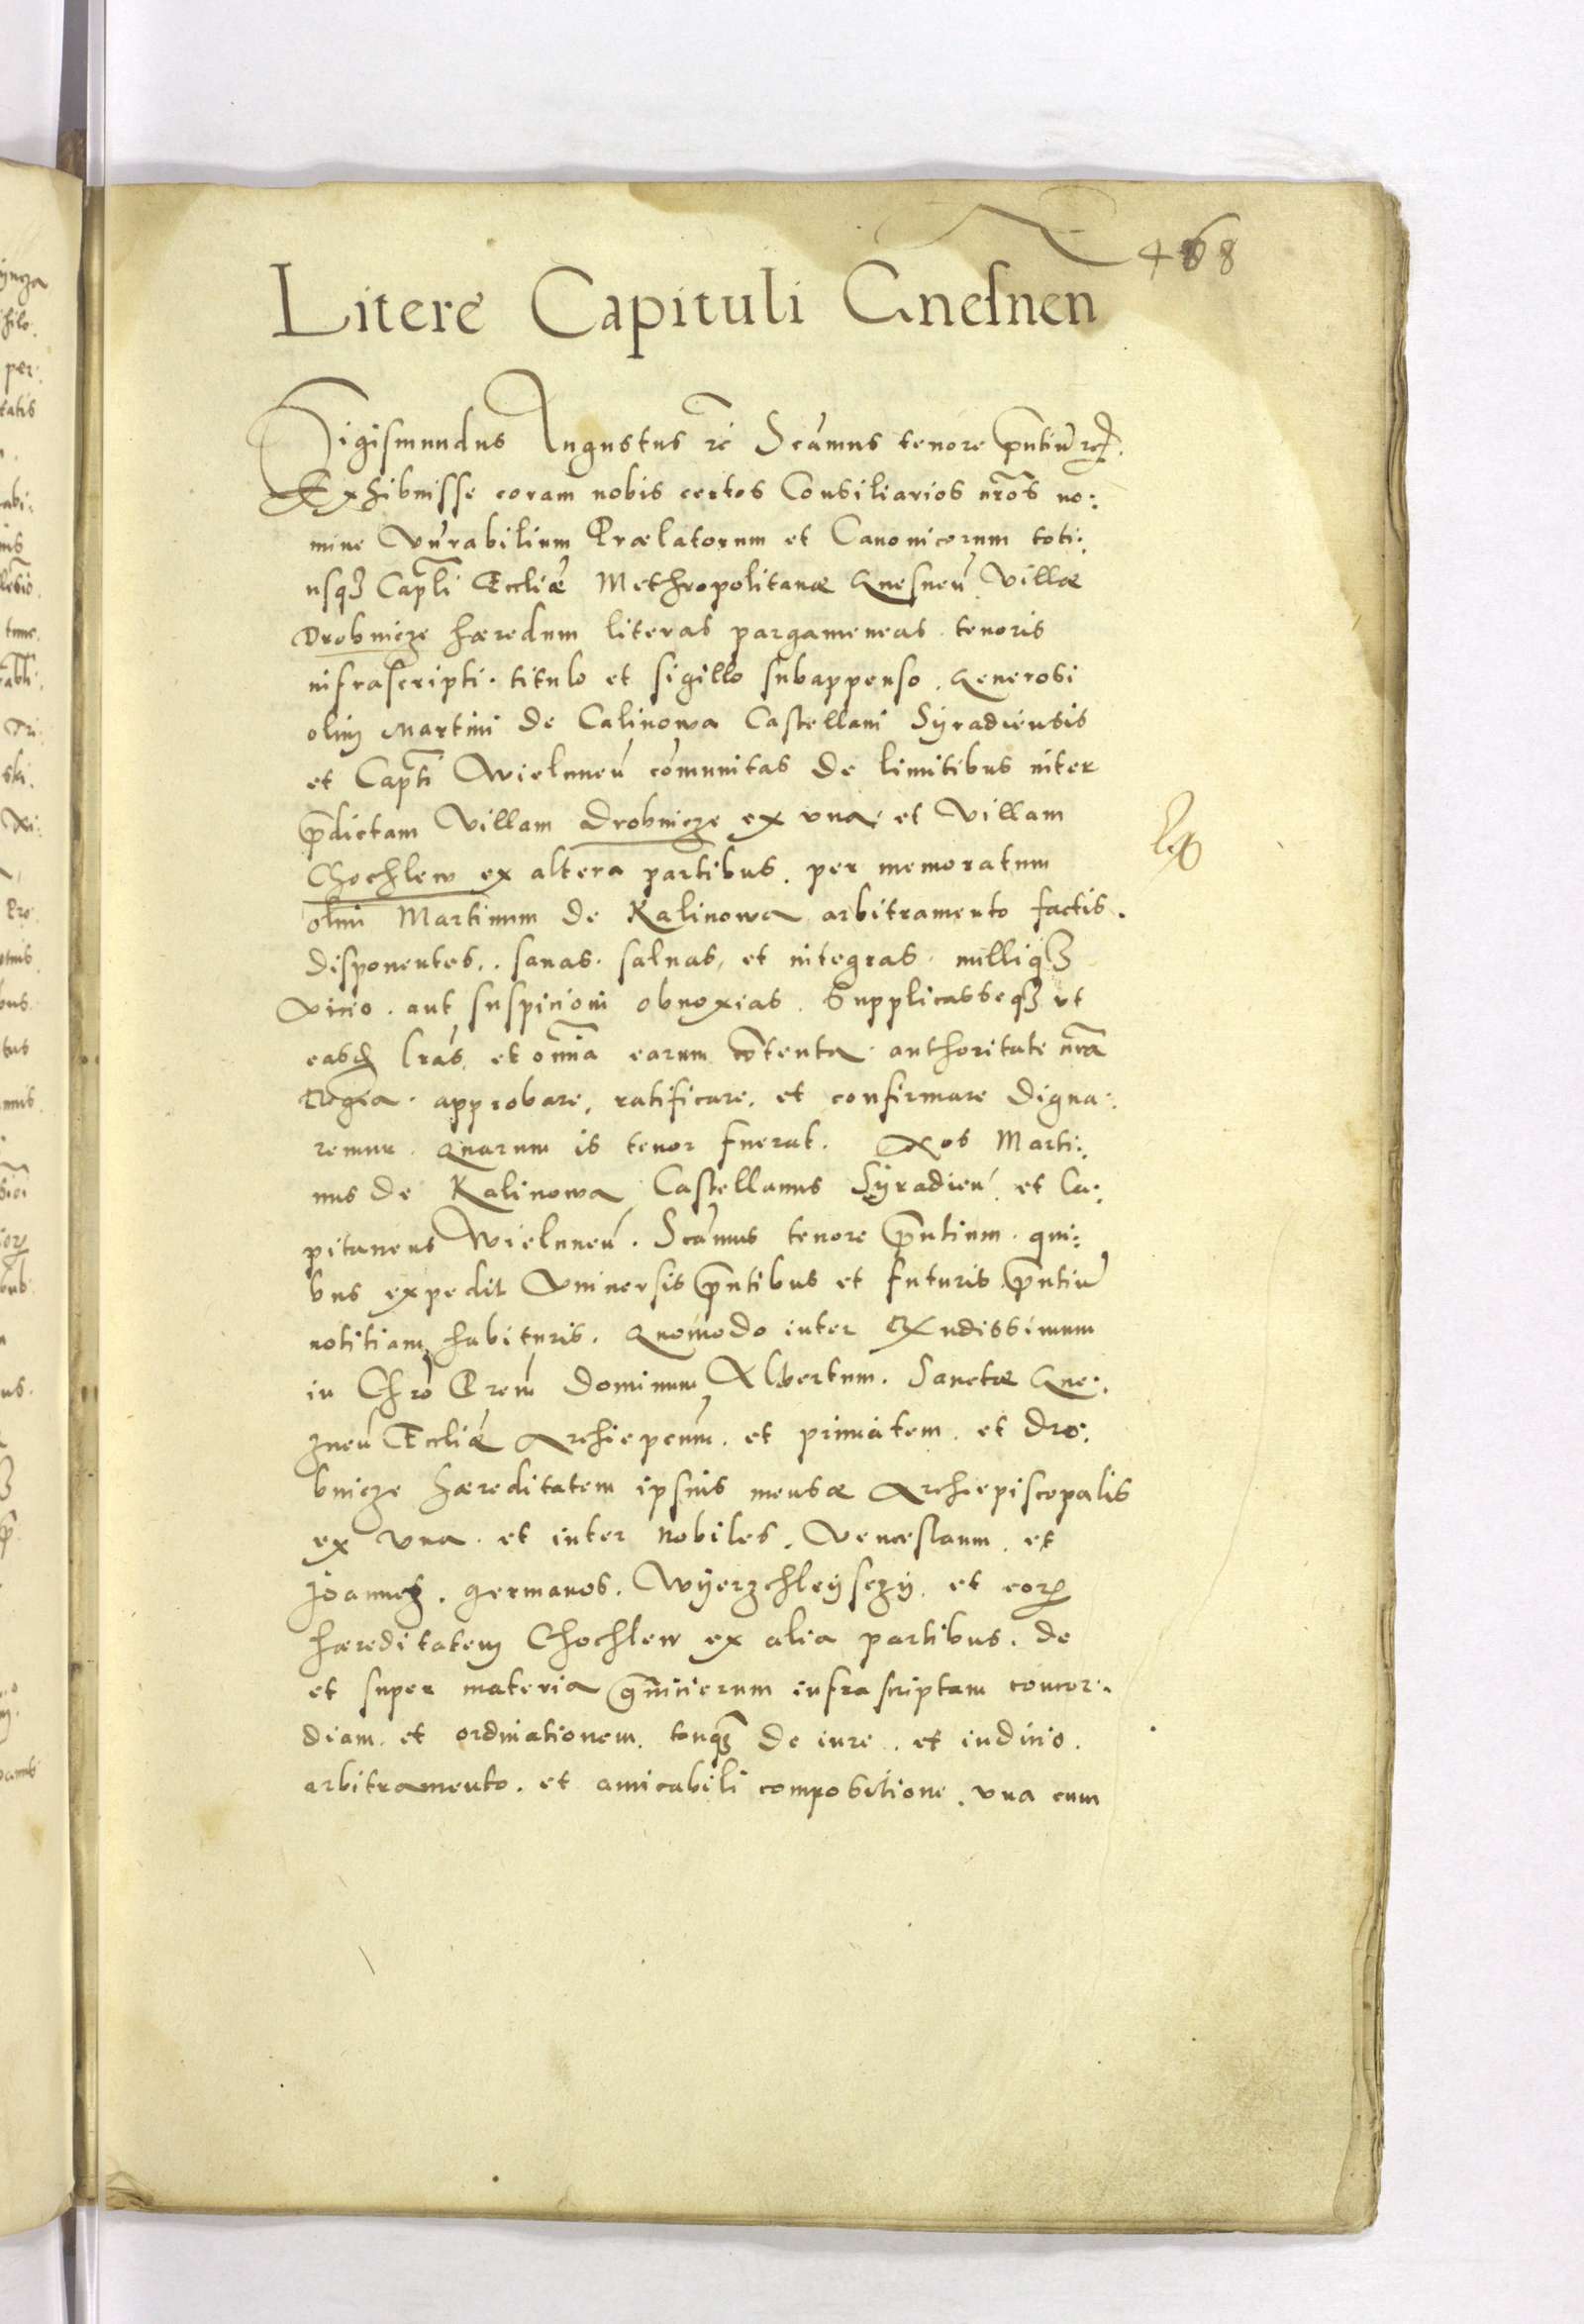 468
Litere Capituli Gnesnen
Sigismundus Augustus rc̄ Scámus tenore pn̄tiū rc.
Exhibuisse coram nobis certos Consiliarios nr̄os no:
mine Vūrabilium Prælatorum et Canonicorum toti:
usq3 Capl̄i Eccliæ Methropolitanæ Gnesneń Villæ
Drobnicze hæredum literas pargameneas tenoris
infrascripti. titulo et sigillo subappenso. Generosi
olim Martini de Calinowa Castellani Syradiensis
et Capt̄i Wieluneń com̄unitas de limitibus inter
p̄dictam Villam Drobnicze ex una et Villam
Chochlew ex altera partibus. per memoratum
olim Martinum de Kalinowa arbitramento factis.
disponentes. sanas. saluas, et integras. nulliq3
vicio. aut suspicioni obnoxias. Supplicasseq3 ut
easd̄ lrás et om̄ia earum cōtenta authoritate nr̄a
Regia. approbare, ratificare. et confirmare digna:
remur. Quarum is tenor fuerat. Nos Marti:
nus de Kalinowa Castellanus Syradień et Ca:
pitaneus Wieluneń. Scámus tenore p̄ntium. qui:
bus expedit Vniuersis p̄ntibus et futuris p̄ntiū
notitiam habituris. Quomodo inter Rx̄ndissimum
in Chrō Prem̄ Dominum Albertum. Sanctæ Gne:
zneń Eccliæ Archiepcum̄. et primatem. et Dro:
bnicze hæreditatem ipsius mensæ Archiepiscopalis
ex una. et inter nobiles. Venceslaum. et
Joannes. germanos. Wyerzchleysczy. et eor̨
hæreditatem Chochlew ex alia partibus. de
et super materia grānicierum infrascriptam concor:
diam. et ordinationem. tanq3 de iure. et iudicio.
arbitramento. et amicabili compositione. una cum